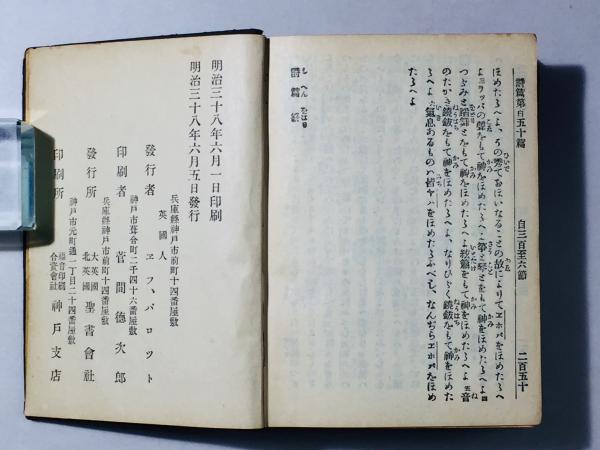 詩篇第百五十篇 自三百至六節 二百五十
ほめたたへよ、その秀ておほいなることの故によりてヱホバをほめたたへよ
ラッパの聲をもて神をほめたたへよ 筝と琴とをもて神をほめたたへよ 四
つづみと蹈舞とをもて神をほめたたへよ 絃簫をもて神をほめたたへよ 五 音
のたかき鐃鈸をもて神をほめたたへよ、なりひびく鐃鈸をもて神をほめた
たへよ 六 氣息あるものは皆ヤハをほめたたふべし、なんぢらヱホバをほめ
たたへよ
詩篇終
明治三十八年六月一日印刷
明治三十八年六月五日發行
兵庫縣神戸市前町十四番屋敷
英國人
發行者 ヱフ、パロット
神戸市葺合町二千四十六番屋敷
印刷者 菅間德次郎
兵庫縣神戸市前町十四番屋敷
發行所 大英國 北英國 聖書會社
神戸市元町通一丁目二十四番屋敷
印刷所 福音印刷 合資會社 神戸支店